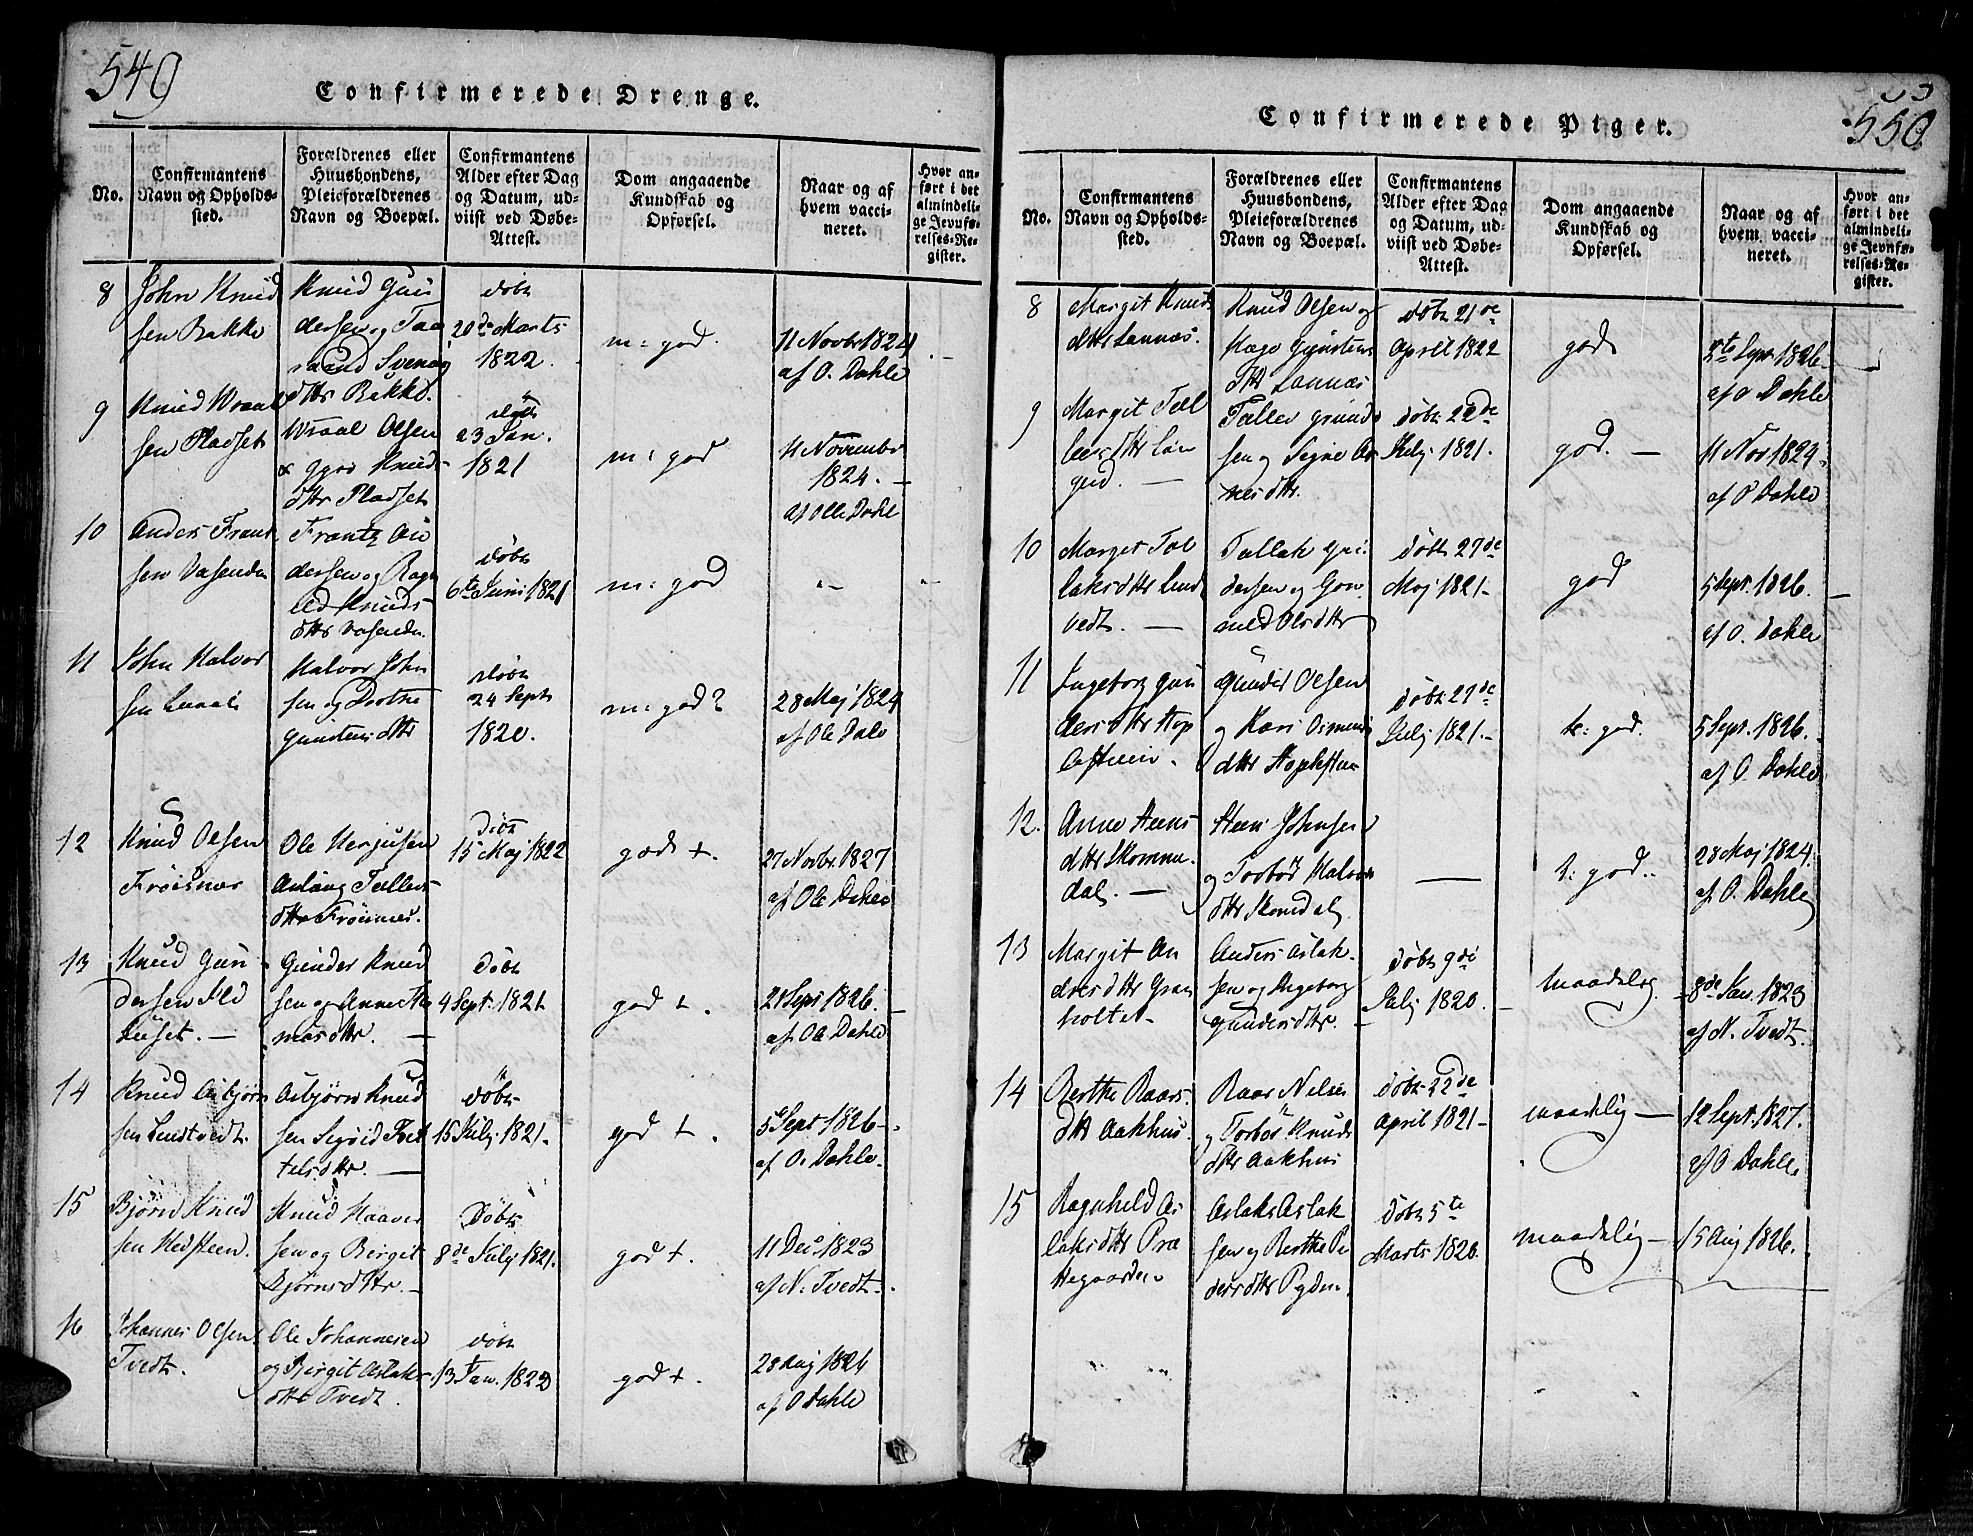 549
Confirmerede Drenge.
No.
Confirmantens
Navn og Opholds-
sted.
Forældrenes eller
Huusbondens,
Pleieforældrenes
Navn og Boepæl.
Confirmantens
Alder efter Dag
og Datum, ud-
viist ved Døbe-
Attest.
Dom angaaende
Kundskab og
Opførsel.
Naar og af
hvem vacci-
neret.
Hvor an-
ført i det
almindeli-
ge Jevnfø-
relses-Re-
gister.
8
John Knud
sen Bakke
Knud Gun
dersen og Taa
raand Svenog
dttr Bakke.
døbt
20de Marts
1822.
m: god.
11 Novbr 1824
af O. Dahle
9
Knud Wraal
sen Pladset
Wraal Olsen
Knuds-
dttr Pladset
døbt
23 Jan.
1821
m: god
11 November
1824. –
af Olle Dahl
10
Anders Frant
sen Vasenden
Frantz An
dersen og Ragn
ild Knuds
dttr Vasenden
døbt
6te Juni 1821
m: god
11
John Halvor
sen
Halvor John
sen og Dortne
Gunstens dttr
døbt
24 Sept
1820.
m: god
28 Maj 1824
af Ole Dale
12
Knud Olsen
Frøisnes
Ole Herjusen
Anlaug Tallevs
dttr Frøisnes.
døbt
15 Maj 1822
god +.
27 Novbr. 1827
af Ole Dahle
13
Knud Gun
dersen
Gunder Knud
sen og Anne Tho
mas dttr. –
Døbt
4 Sept. 1821
god +.
21 Sept 1826. –
af Ole Dahle
14
Knud Asbjørn
sen Lundtvedt.
Asbjørn Knud
sen Sigrid
tels dttr. –
døbt
15 Julj 1821.
god +.
5 Sept 1826 –
af O. Dahle.
15
Bjørn Knud
sen Hedsteen.
Knud Haavor
sen og Birgit
Bjørns dttr. –
Døbt
8de Julj 1821.
god +.
11 Dec. 1823
af N. Tvedt.
16
Johannes Olsen
Tvedt.
Ole Johannesen
og Birgit Aslaks
dttr Tvedt.
døbt
13 Jan. 1822
god +.
28 Aug 1824
af O Dahle
550
Confirmerede Piger.
No.
Confirmantens
Navn og Opholds-
sted.
Forældrenes eller
Huusbondens,
Pleieforældrenes
Navn og Boepæl.
Confirmantens
Alder efter Dag
og Datum, ud-
viist ved Døbe-
Attest.
Dom angaaende
Kundskab og
Opførsel.
Naar og af
hvem vacci-
neret.
Hvor an-
ført i det
almindeli-
ge Jevnfø-
relses-Re-
gister.
8
Margit Knuds
dttr Lannæs.
Knud Olsen og
Gunstens
dttr Lannæs
døbt 21de
April 1822
god
5te Sept 1826.
af O Dahle
9
Margit Tall
levs dttr Lon
gerd. –
Tallev Gunds
sen og Signe Ar
nes dttr.
døbt 22de
Julj 1821.
god. –
11 Nov 1824.
af O Dahle
10
Marget Tal
laks dttr Lund
vedt. –
Tallak Gun
dersen og Gon
nild Ols dttr
døbt 27de
Maj 1821 –
god
5 Sept. 1826.
af O. Dahle
11
Ingeborg Gun
ders dttr Hop
Gunder Olsen
og Kari Osmunds
dttr
døbt 27de
Julj 1821. –
t: god.
5 Sept. 1826.
af O. Dahle
12.
Anne Steens
dttr Skomme
dal. –
Steen Johnsen
og Torbør Halvors
dttr Skomdal
–
t: god.
28 Maj 1824.
af O. Dahle
13
Margit An
ders dttr Gran
holtet –
Anders Aslak-
sen og Ingeborg
Gunders dttr. –
døbt 9de
Julj 1820. –
maadelig.
8de Jan. 1823
af N. Tvedt.
14
Berthe Roars
dttr Aakhus.
Roar Nilsen
og Torbør Knuds
dttr Aakhus
døbt 22de
April 1821 –
maadelig –
12 Sept. 1827.
af O Dahle
15
Ragnhild As
laks dttr Præ
stegaarden
Aslak Aslak
sen og Berthe Pe
ders dttr
døbt 5te
Marts 1820.
maadelig –
15 Aug 1826.